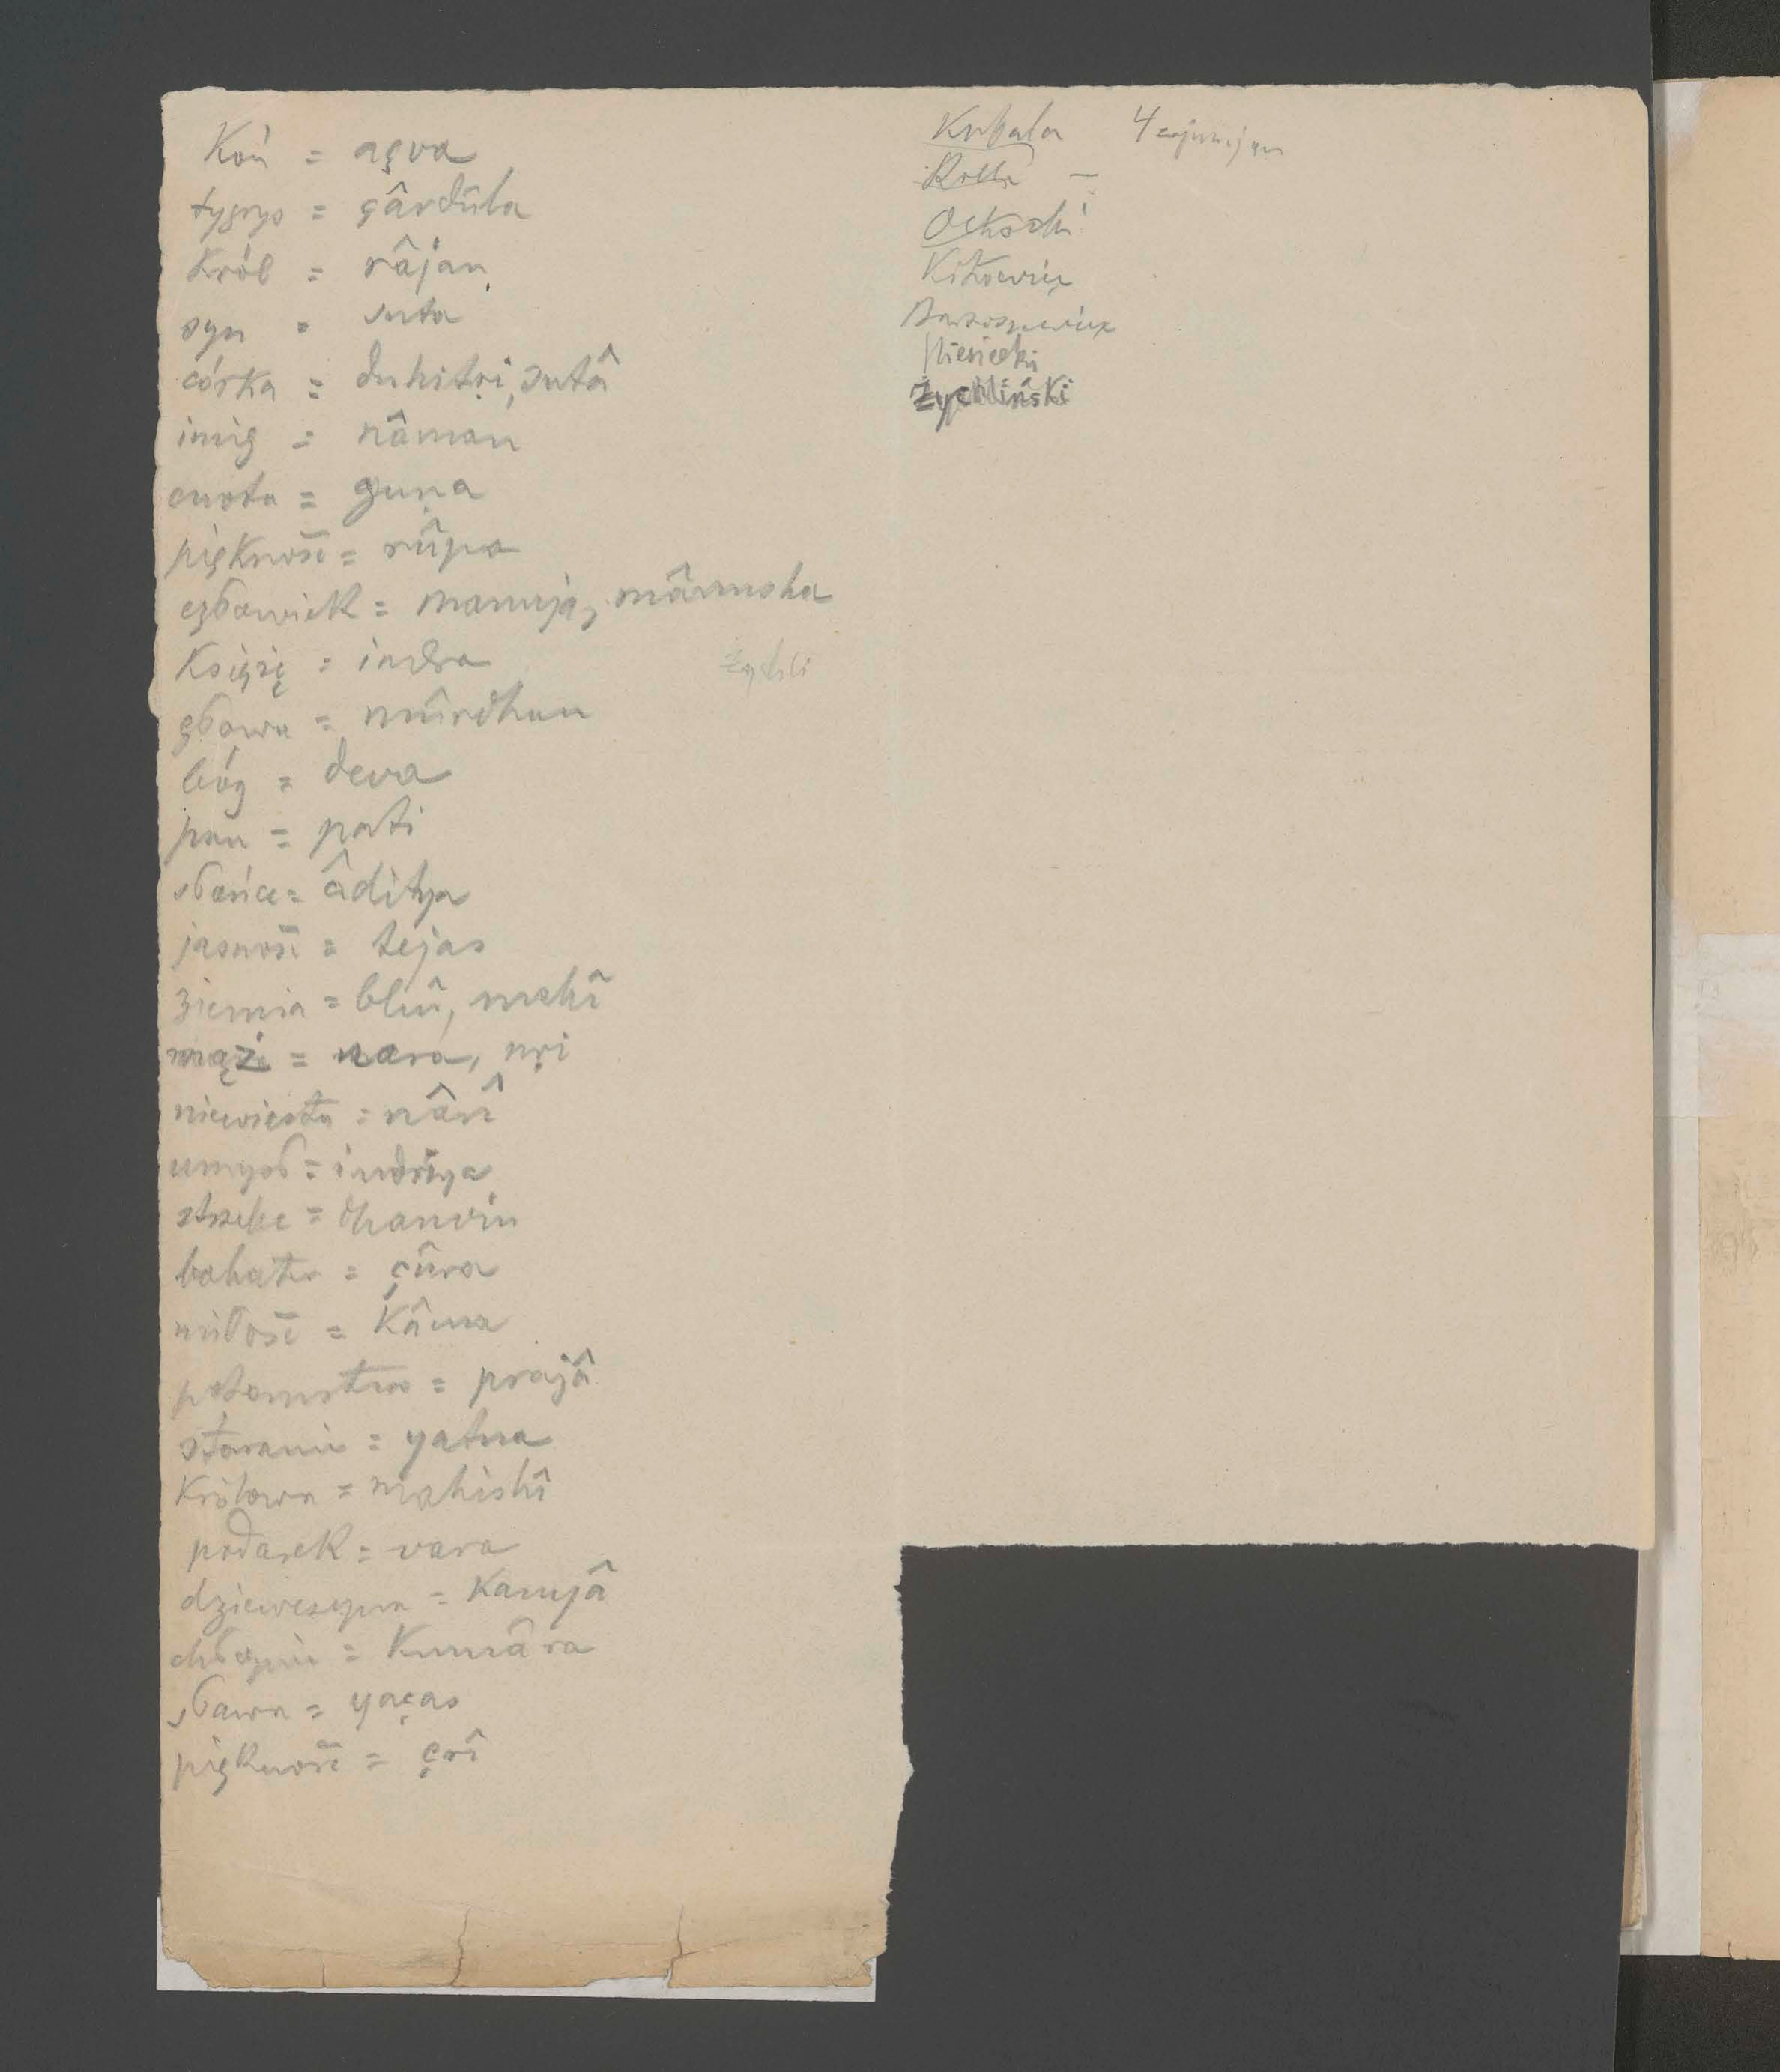 Koń = açva
tygrys = çârdûla
Król = râjan
syn = suta
córka = duhitṛi, sutâ
imię = nâman
cnota = guṇa
piękność = rûpa
człowiek = manuja, mânusha
Książę = indra
głowa = mûrdhan
bóg = deva
pan = pati
słońce = âditya
jasność = tejas
ziemia = bhû, mahî
mąż = nara, nṛi
niewiasta = nârî
umysł = indriya
strzelec = dhanvin
bohater = çûra
miłość = Kâma
potomstwo = prajâ
staranie = yatna
Królowa = mahishî
podarek = vara
dziewczyna = Kanyâ
chłopiec = Kumâra
sława = yaças
piękność = çrî
Żychli
Kubala 4
Rolle –
Ochocki
Kitowicz
Bartoszewicz
Niesiecki
Żychliński